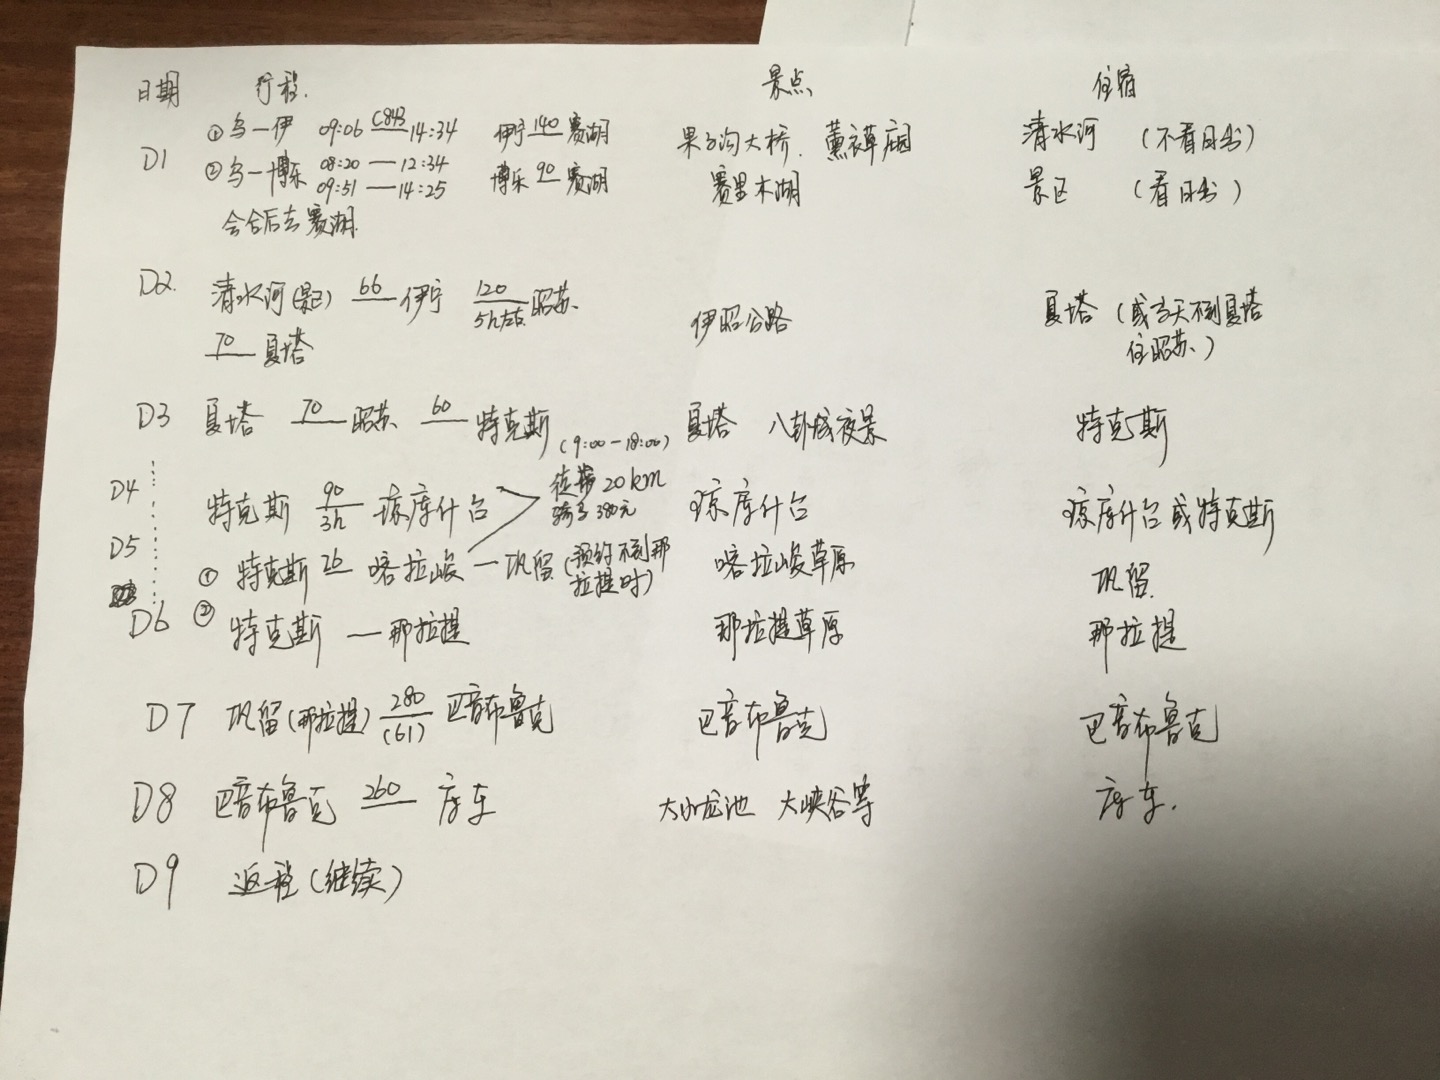 日期 行程 景点 住宿
D1 ①乌—伊 09:06 C843 14:34 伊宁 140 赛湖 果子沟大桥、薰衣草园 清水河 (不看日出)
②乌—博乐 08:20 — 12:34 博乐 90 赛湖 赛里木湖 景区 (看日出)
09:51 — 14:25
会合后去赛湖
D2. 清水河(景区) 66 伊宁 120 5h左右 昭苏 伊昭公路 夏塔 (或当天不到夏塔
70 夏塔 住昭苏)
D3 夏塔 70 昭苏 60 特克斯 夏塔 八卦城夜景 特克斯
(9:00-18:00)
D4 特克斯 90 3h 琼库什台 徒步20km 琼库什台 琼库什台或特克斯
骑马380元
D5 ① 特克斯 26 喀拉峻 — 巩留 (预约不到那 喀拉峻草原 巩留
拉提时)
D6 ② 特克斯 — 那拉提 那拉提草原 那拉提
D7 巩留(那拉提) 280 (61) 巴音布鲁克 巴音布鲁克 巴音布鲁克
D8 巴音布鲁克 260 库车 大小龙池 大峡谷等 库车.
D9 返程(继续)